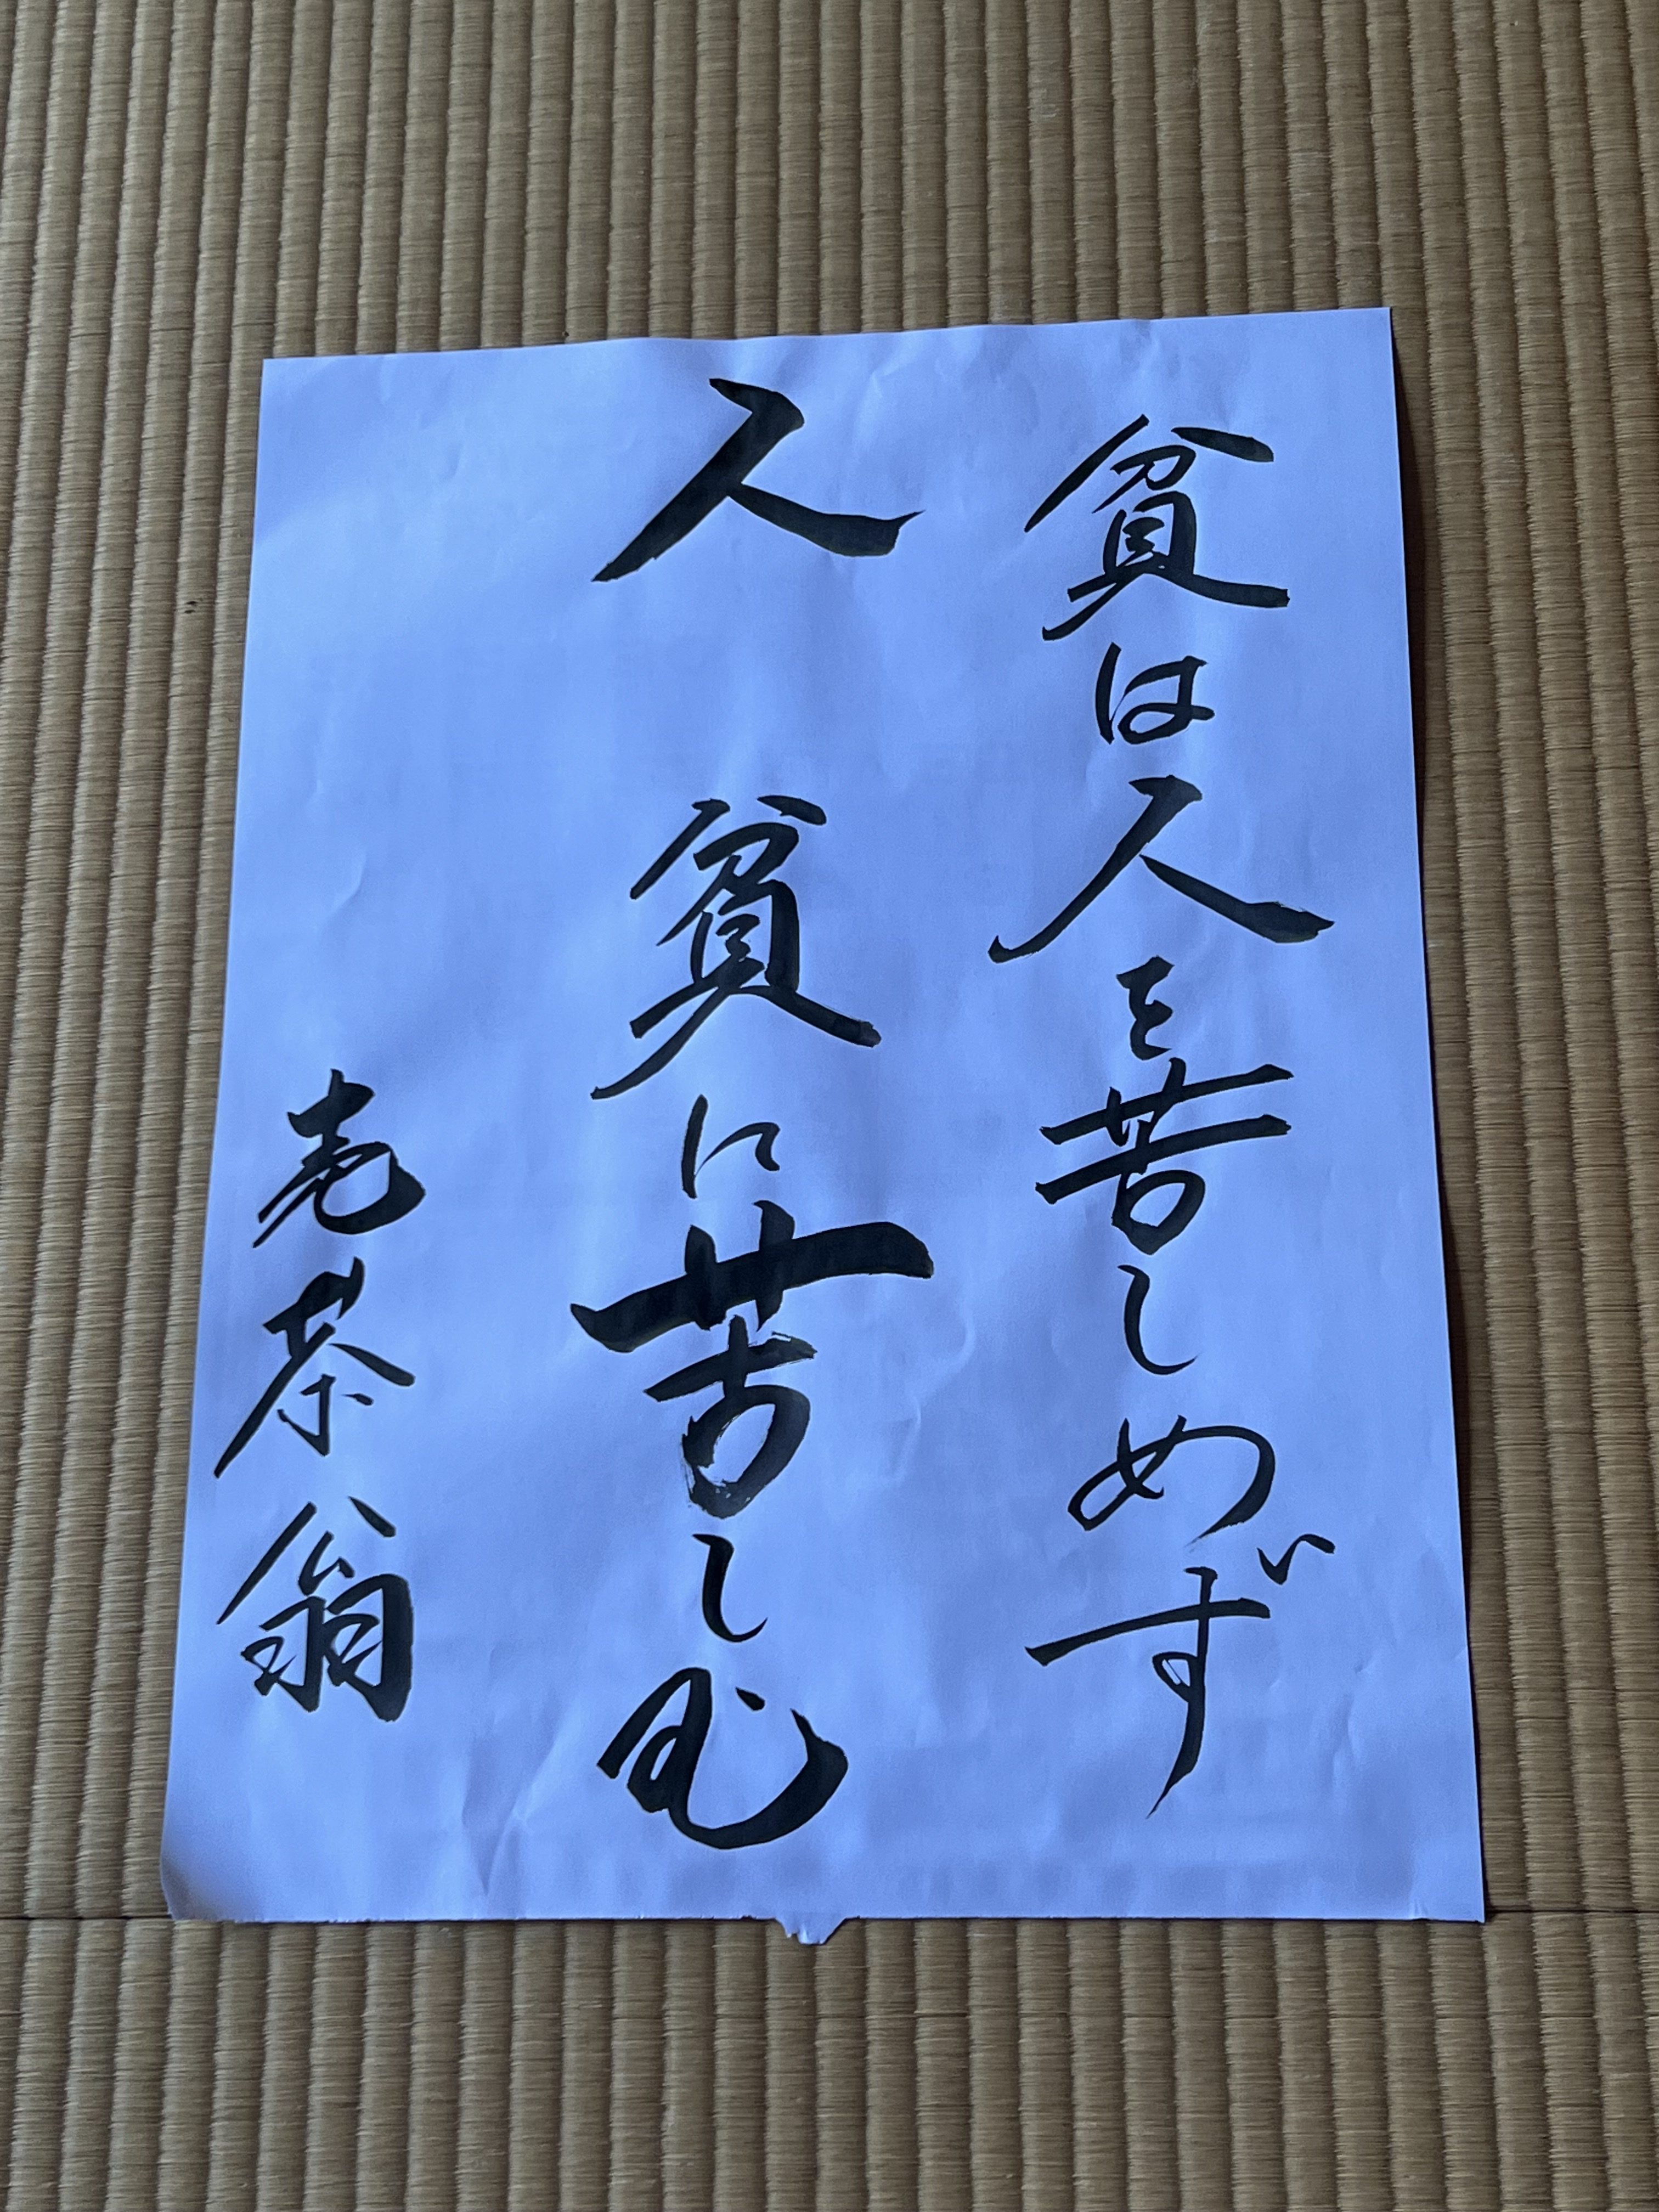 貧は人を苦しめず
人 貧に苦しむ
売茶翁